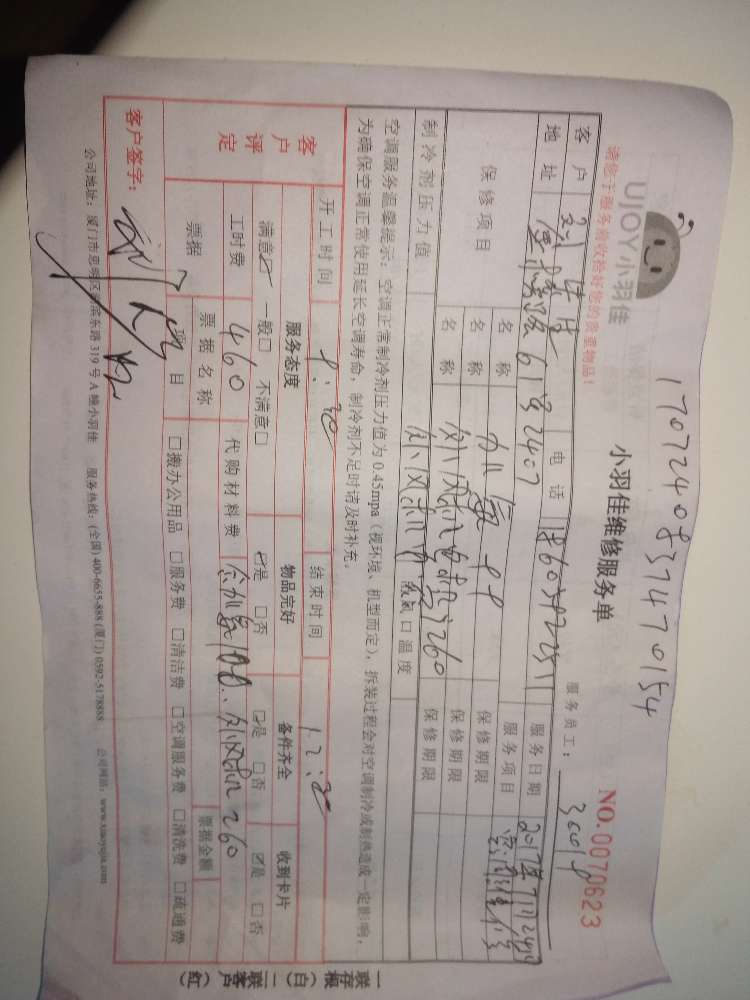 17072408374770154
UJOY小羽佳
小羽佳维修服务单
NO.0070623
请您于服务前收捡好您的贵重物品!
服务员工:
客户
电话
服务日期 2017年7月24日
地址
61号2407
服务项目
保修项目
名称 加氟
保修期限
名称 外风机电机 260
保修期限
名称
保修期限
制冷剂压力值
风口温度
空调服务温馨提示:空调正常制冷剂压力值为0.45mpa(视环境、机型而定),拆装过程会对空调制冷或制热造成一定影响,
为确保空调正常使用延长空调寿命,制冷剂不足时请及时补充。
开工时间
结束时间
客户评定
服务态度
物品完好
备件齐全
收到卡片
满意☑ 一般□ 不满意□
☑是 □否
☑是 □否
☑是 □否
工时费 460
代购材料费
票据
票据名称
票据金额
项目
□搬办公用品 □服务费 □清洁费 □空调服务费 □清洗费 □疏通费
客户签字:
公司地址:厦门市思明区湖滨东路319号A幢小羽佳 服务热线:(全国)400-6655-888 (厦门) 0592-5178888 公司网站:www.xiaoyujia.com
一联存根(白) 二联客户(红)